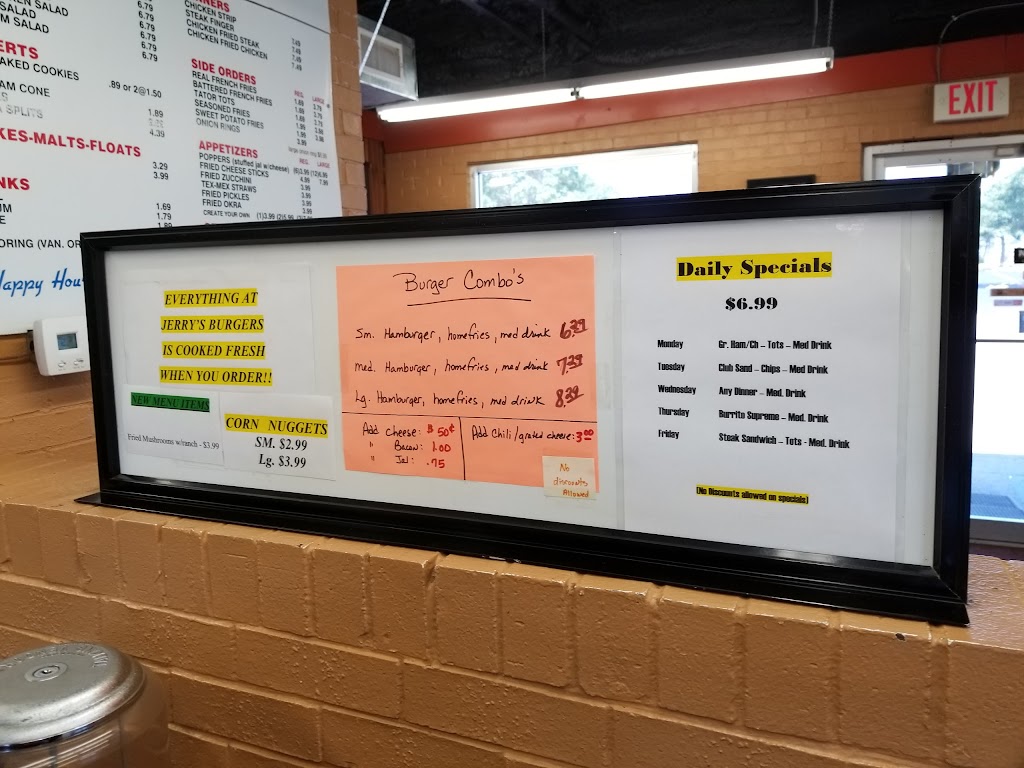 EN SALAD 6.79
SALAD 6.79
M SALAD 6.79
6.79
6.79
ERTS
AKED COOKIES
.89 or 2@1.50
AM CONE
SPLITS
1.89
4.39
KES-MALTS-FLOATS
3.29
3.99
NKS
1.69
1.79
ORING (VAN. OR
appy Hou
NNERS
CHICKEN STRIP 7.49
STEAK FINGER 7.49
CHICKEN FRIED STEAK 7.49
CHICKEN FRIED CHICKEN 7.49
SIDE ORDERS
REG. LARGE
REAL FRENCH FRIES
BATTERED FRENCH FRIES
TATOR TOTS
SEASONED FRIES
SWEET POTATO FRIES
ONION RINGS
APPETIZERS
REG. LARGE
POPPERS (stuffed jal w/cheese)
FRIED CHEESE STICKS
FRIED ZUCCHINI
TEX-MEX STRAWS 3.99
FRIED PICKLES 3.99
FRIED OKRA 3.99
CREATE YOUR OWN
EXIT
EVERYTHING AT
JERRY'S BURGERS
IS COOKED FRESH
WHEN YOU ORDER!!
NEW MENU ITEMS
Fried Mushrooms w/ranch - $3.99
CORN NUGGETS
SM. $2.99
Lg. $3.99
Burger Combo's
Sm. Hamburger, homefries, med drink 6.39
med. Hamburger, homefries, med drink 7.39
Lg. Hamburger, homefries, med drink 8.39
Add cheese: $ 50¢
" Bacon: 1.00
" Jal: .75
Add Chili/grated cheese: 3.00
No
discounts
Allowed
Daily Specials
$6.99
Monday Gr. Ham/Ch – Tots – Med Drink
Tuesday Club Sand – Chips – Med Drink
Wednesday Any Dinner – Med. Drink
Thursday Burrito Supreme – Med. Drink
Friday Steak Sandwich – Tots - Med. Drink
(No Discounts allowed on specials)